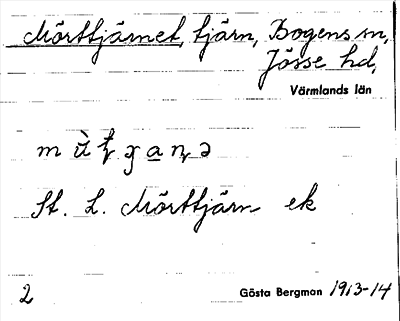 Mörttjärnet, tjärn, Bogens sn,
Jösse hd,
Värmlands län
St. L. Mörttjärn ek
2
Gösta Bergman 1913-14